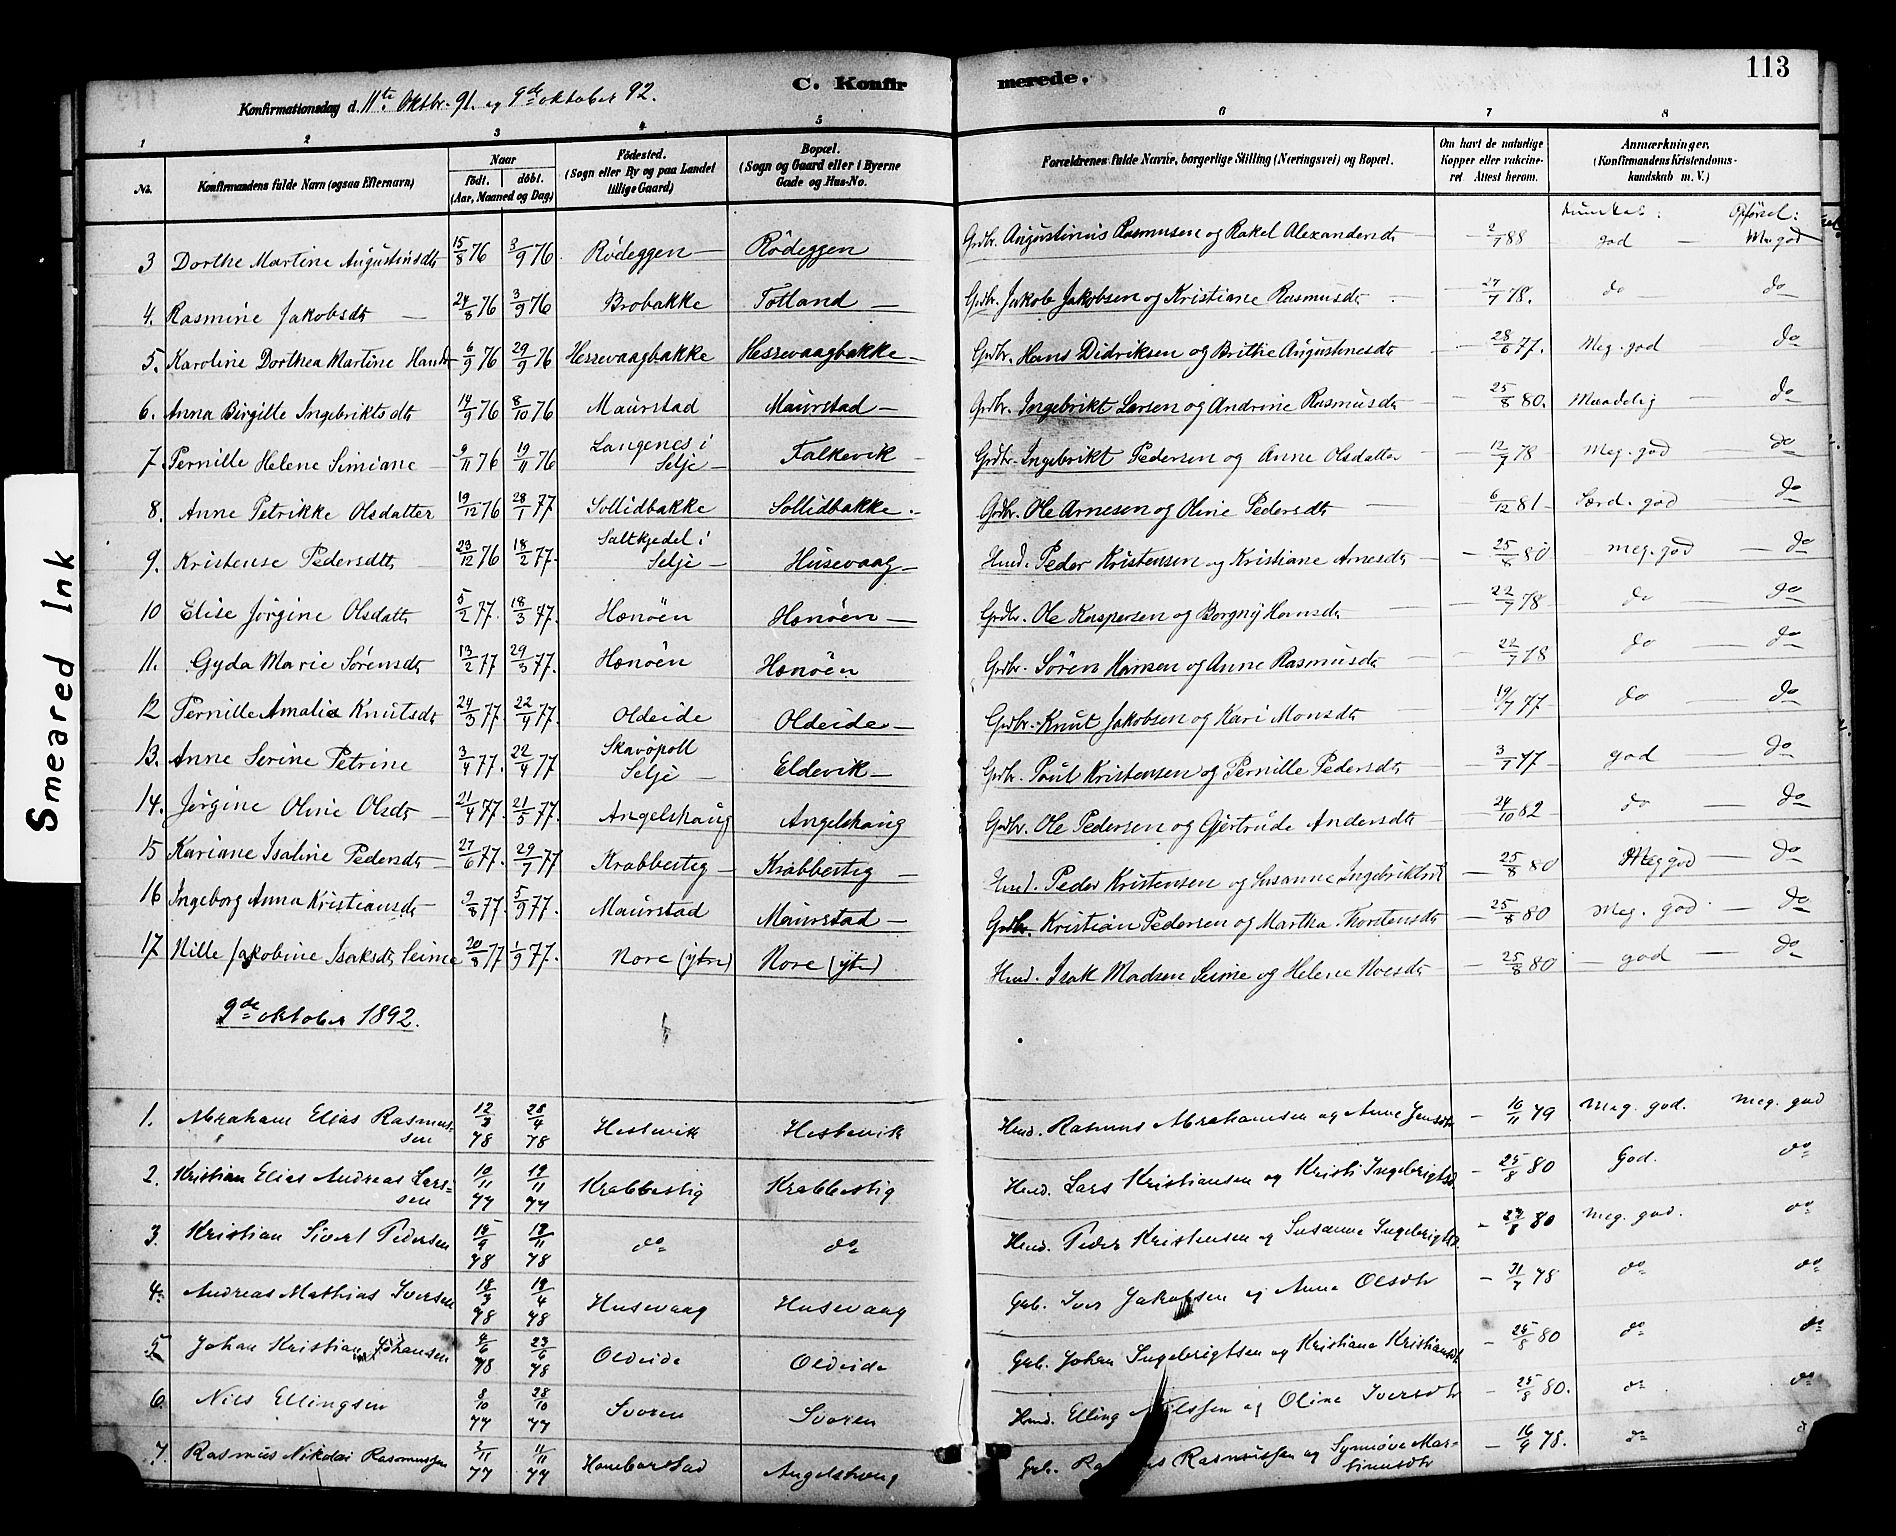 113
C. Konfirmerede.
Konfirmationsdag d. 11te Oktbr. 91. og 9de oktober 92.
1 2 3 4 5 6 7 8
No. Konfirmandens fulde Navn (ogsaa Efternavn) Naar født. døbt. (Aar, Maaned og Dag) Fødested. (Sogn eller By og paa Landet tillige Gaard) Bopæl. (Sogn og Gaard eller i Byerne Gade og Hus-No. Forældrenes fulde Navne, borgerlige Stilling (Næringsvei) og Bopæl. Om havt de naturlige Kopper eller vakcineret. Attest herom. Anmærkninger. (Konfirmandens Kristendomskundskab m. V.)
Kundskab: Opförsel:
3 Dorthe Martine Augustinsdtr 15/8 76 3/9 76 Rödeggen Rödeggen Grdbr. Augustinus Rasmusen og Rakel Alexandersdtr 2/7 88 god M. god
4. Rasmine Jakobsdtr 24/8 76 3/9 76 Brobakke Totland Grdbr. Jakob Jakobsen og Kristiane Rasmusdtr 27/7 78. do do
5. Karoline Dorthea Martine Hansdtr 6/9 76 29/9 76 Hessevaagbakke Hessevaagbakke Grdbr. Hans Didriksen og Brithe Augustinesdtr 28/6 77. Meg. god do
6. Anna Birgitte Ingebriktsdtr 14/9 76 8/10 76 Maurstad Maurstad Grdbr. Ingebrikt Larsen og Andrine Rasmusdtr 25/8 80. Maadelig do
7. Pernille Helene Simiane 9/11 76 19/11 76 Langenes i Selje Falkevik Grdbr. Ingebrikt Pedersen og Anne Olsdatter 12/7 78 Meg. god do
8. Anne Petrikke Olsdatter 19/12 76 28/1 77 Sollidbakke Sollidbakke. Grdbr. Ole Arnesen og Oline Pedersdtr 6/12 81 Særd. god do
9. Kristense Pedersdtr 23/12 76 18/2 77. Saltkjedel i Selje Husevaag Hmd. Peder Kristensen og Kristiane Arnesdtr 25/8 80 meg. god do
10 Elise Jörgine Olsdatr 5/2 77. 18/3 77. Hanöen Hanöen Grdbr. Ole Kaspersen og Borgny Hansdtr 22/7 78 do do
11. Gyda Marie Sörensdtr 13/2 77 29/3 77. Hanöen Hanöen Grdbr. Sören Hansen og Anne Rasmusdtr 22/7 78 do do
12 Pernille Amalie Knutsdtr 24/3 77. 22/4 77. Oldeide Oldeide Grdbr. Knut Jakobsen og Kari Monsdtr 19/7 77 do do
13. Anne Serine Petrine 3/4 77. 22/4 77 Skavöpoll Selje Eldevik Grdbr. Poul Kristensen og Pernille Pedersdtr 3/7 77 god do
14. Jörgine Oline Olsdtr 21/4 77. 21/5 77. Angelshaug Angelshaug Grdbr. Ole Pedersen og Gjertrude Andersdtr 24/10 82 do do
15 Kariane Isaline Pedersdtr 27/6 77. 29/7 77 Krabbestig Krabbestig Hmd. Peder Kristensen og Susanne Ingebriktsd 25/8 80 Meg god do
16 Ingeborg Anna Kristiansdtr 3/8 77. 5/9 77. Maurstad Maurstad Grdbr. Kristian Pedersen og Martha Thorstensdtr 25/8 80 Meg. god do
17 Nille Jakobine Isaksdtr Seime 20/8 77 1/9 77. Nore (ytre) Nore (ytre) Hmd. Isak Madsen Seime og Helene Moesdtr 25/8 80 god do
9de oktober 1892.
1. Abraham Elias Rasmussen 12/3 78 28/4 78 Hestevik Hestevik Hmd. Rasmus Abrahamsen og Anne Jensdtr 10/11 79 Meg. god. meg. god
2. Kristian Elias Andreas Larssen 10/11 77 19/11 77 Krabbestig Krabbestig Hmd. Lars Kristiansen og Kristi Ingebrigtsd. 25/8 80 God. do
3. Kristian Sivert Pedersen 78 78 do do Hmd. Peder Kristensen og Susanne Ingebrigtsd. 80 Meg. god. do
4. Andreas Mathias Iversen 18/3 78 19/4 78 Husevaag Husevaag Grb. Iver Jakobsen og Anna Olsdtr 31/7 78 do do
5 Johan Kristian Johansen 4/6 78 23/6 78 Oldeide Oldeide Grb. Johan Ingebrigtsen og Kristiana Kristiansdtr 25/8 80 do do
6. Nils Ellingsen 8/10 77 28/10 77 Svoren Svoren Hmd. Elling Nilssen og Oline Iversdtr 25/8 80. do do
7. Rasmus Nikolai Rasmussen 2/11 77 11/11 77 Hanebarstad Angelshoug Grb. Rasmus Rasmussen og Synnöve Marsinusdtr 16/9 78. do
Smeared Ink